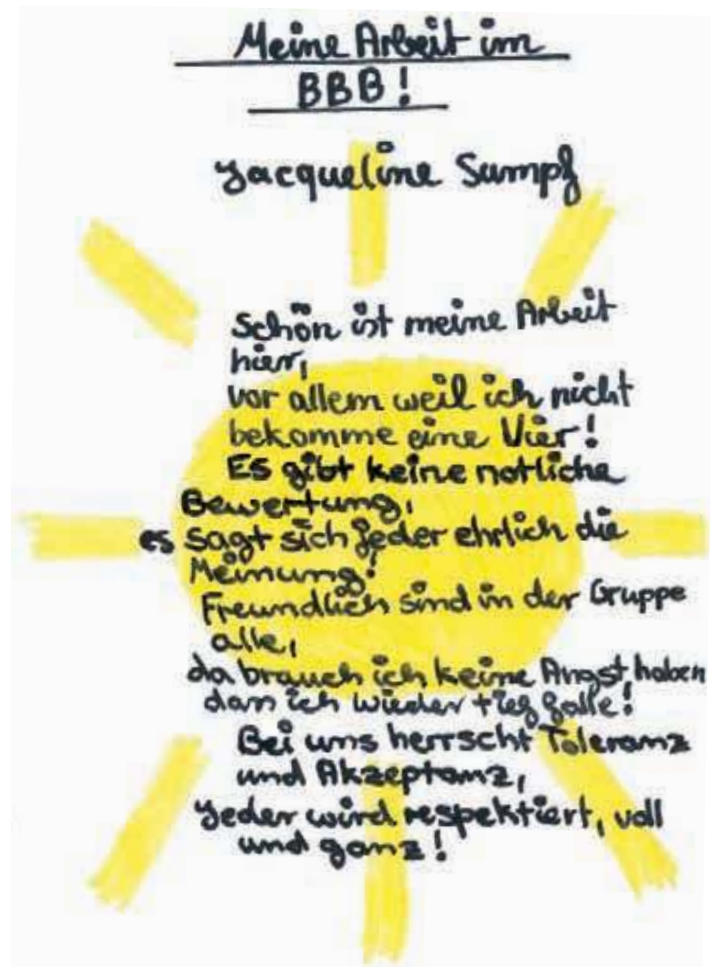 Meine Arbeit im
BBB!
Jacqueline Sumpf
Schön ist meine Arbeit
hier,
vor allem weil ich nicht
bekomme eine Vier!
Es gibt keine notliche
Bewertung,
es sagt sich jeder ehrlich die
Meinung!
Freundlich sind in der Gruppe
alle,
da brauch ich keine Angst haben
dass ich wieder tief falle!
Bei uns herrscht Toleranz
und Akzeptanz,
Jeder wird respektiert, voll
und ganz!